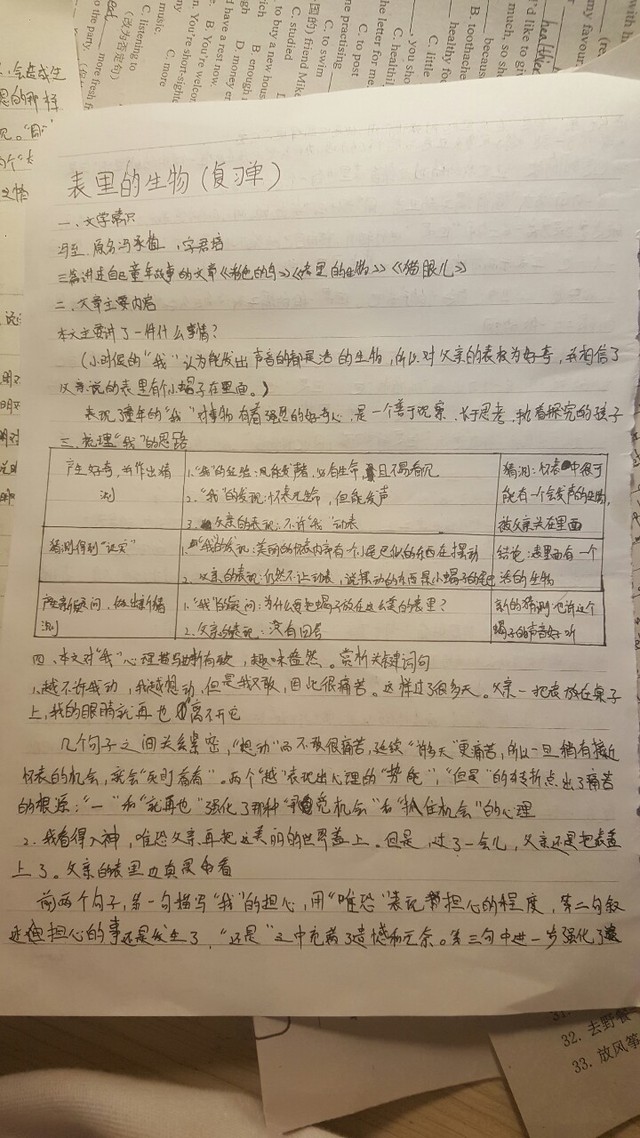 表里的生物(复习单)
一、文学常识
冯至,原名冯承植,字君培
三篇讲述自己童年故事的文章《彩色的鸟》《表里的生物》《猫眼儿》
二、文章主要内容
本文主要讲了一件什么事情?
(小时候的“我”认为能发出声音的都是活的生物,所以对父亲的表极为好奇,并相信了
父亲说的表里有个小蝎子在里面。)
表现了童年的“我”对事物有着强烈的好奇心,是一个善于观察、长于思考、执着探究的孩子
三、梳理“我”的思路
产生好奇,并作出猜
测
1.“我”的经验:凡能发声,必有生命,且不易看见
2.“我”的发现:怀表无命,但能发声
3.父亲的表现:不许“我”动表
猜测:怀表中很可
能有一个会发声的生物,
被父亲关在里面
猜测得到“证实”
1.“我”的发现:美丽的怀表内有一个小尾巴似的东西在摆动
2.父亲的表现:仍然不让动表,说摆动的东西是小蝎子的尾巴
结论:表里面有一个
活的生物
产生新疑问,做出新猜
测
1.“我”的疑问:为什么要把蝎子放在这么美的表里?
2.父亲的表现:没有回答
新的猜测:也许这个
蝎子的声音好听
四、本文对“我”心理描写,趣味盎然。赏析关键词句
1.越不许我动,我越想动,但是我又不敢,因此很痛苦。这样过了很多天。父亲一把表放在桌子
上,我的眼睛就再也离不开它
几个句子之间关系紧密,“想动”而不敢很痛苦,延续“许多天”更痛苦,所以一旦稍有接近
怀表的机会,就会“死盯着看”。两个“越”表现出心理的“势能”,“但是”的转折点出了痛苦
的根源;“一”和“就再也”强化了那种“寻觅机会”和“抓住机会”的心理
2.我看得入神,唯恐父亲再把这美丽的世界盖上。但是,过了一会儿,父亲还是把表盖
上了。父亲的表里边真是好看
前两个句子,第一句描写“我”的担心,用“唯恐”表现担心的程度,第二句叙
述担心的事还是发生了,“还是”之中充满了遗憾和无奈。第三句中进一步强化了
32. 去野餐
33. 放风筝
healthier
my favour.
B. toothache
because
healthy fo
C. little
C. healthi
the letter for me
C. to post
me practising
C. to swim
friend Mike
C. studied
to buy a new hous
B. enough
D. money e
d have a rest now.
B. You're welcom
n. You're short-sight
C. more
C. listening to
music.
to the party.
more fresh f